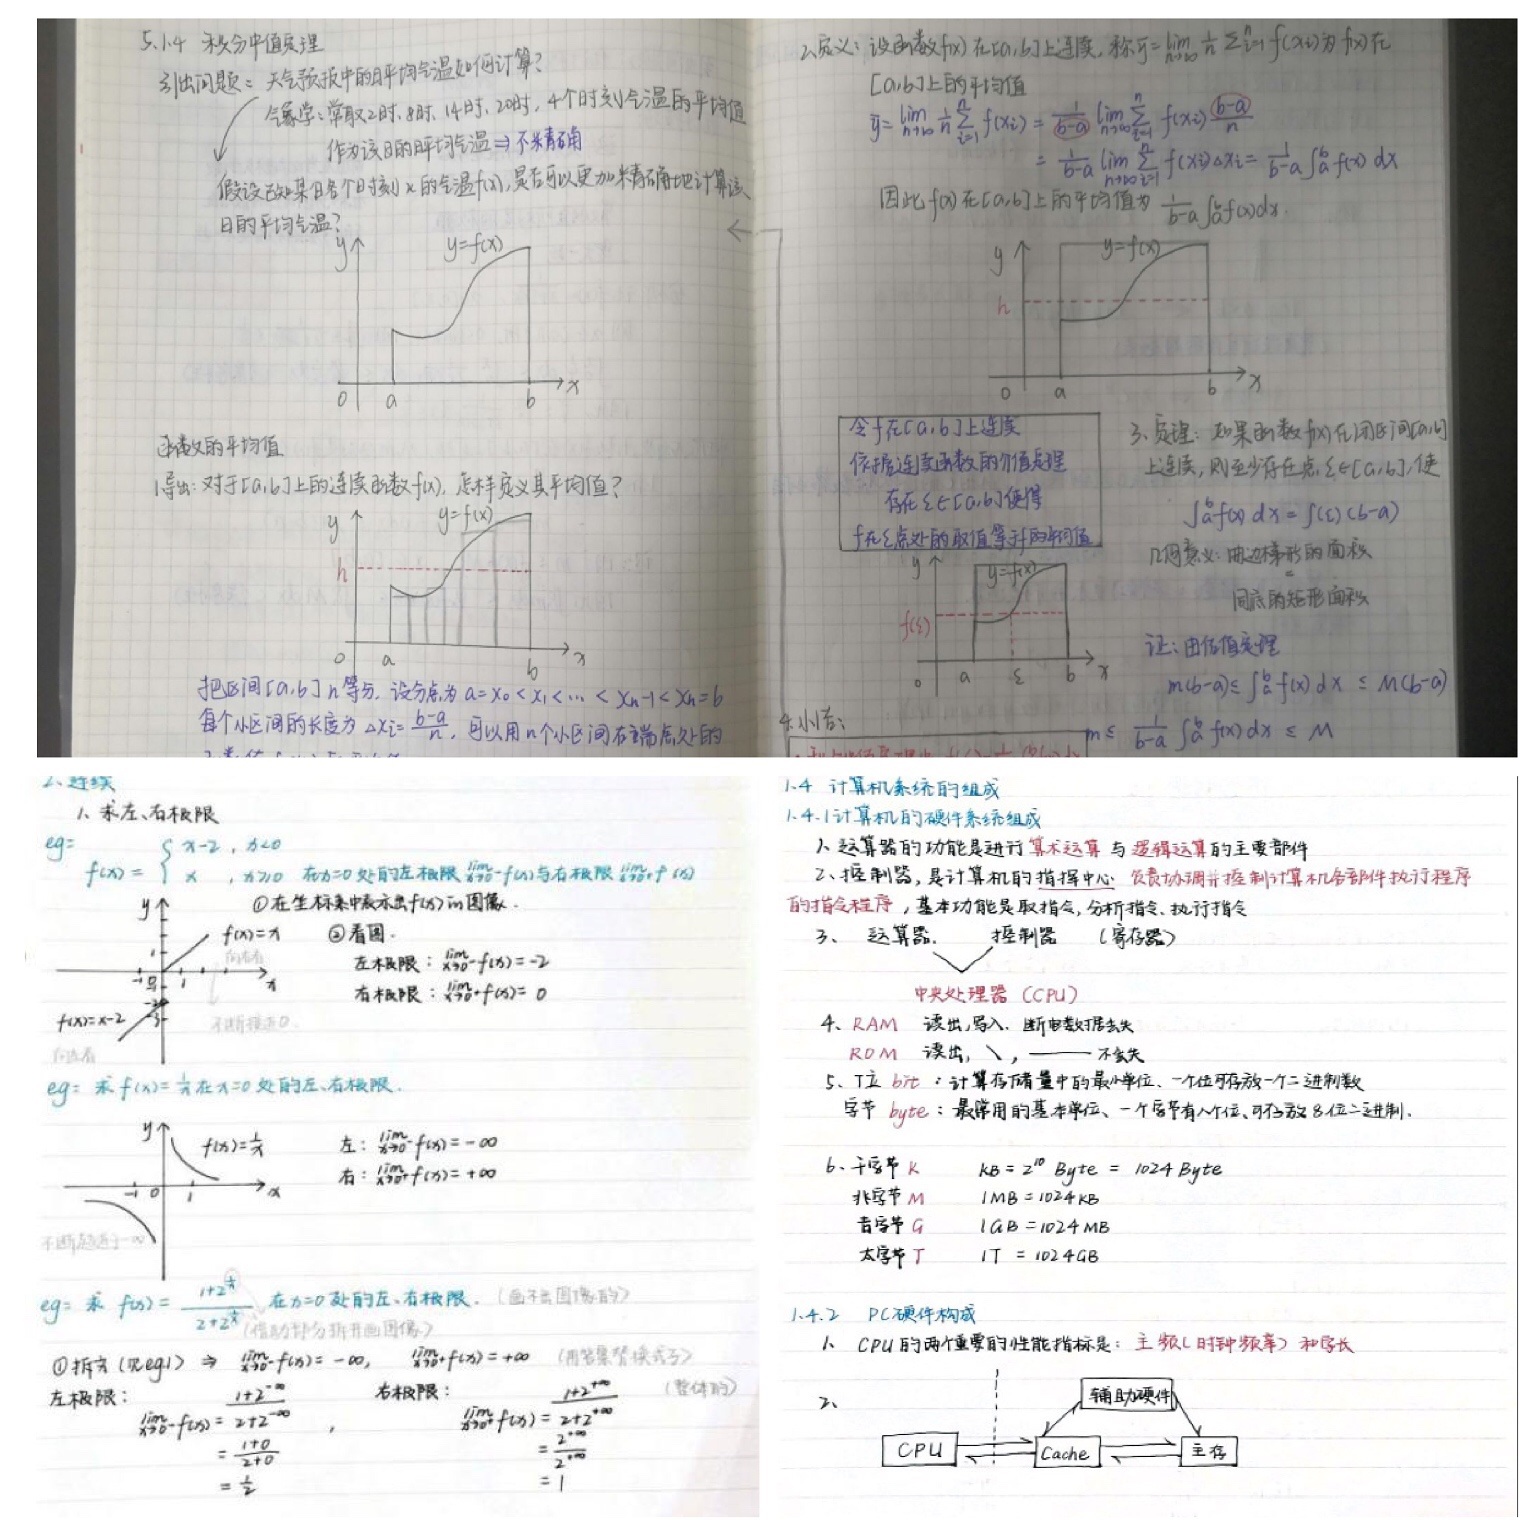 5.1.4 积分中值定理
引出问题：天气预报中的日平均气温如何计算？
气象学：常取2时、8时、14时、20时，4个时刻气温的平均值
作为该日的日平均气温⇒不精确
假设已知某日各个时刻x的气温f(x)，是否可以更加精确地计算该
日的平均气温？
y y=f(x)
0 a b x
函数的平均值
1.导出：对于[a,b]上的连续函数f(x)，怎样定义其平均值？
y y=f(x)
h
0 a b x
把区间[a,b] n等分，设分点为 a=x₀<x₁<…<xₙ₋₁<xₙ=b
每个小区间的长度为 Δxi=(b-a)/n，可以用n个小区间右端点处的
2.定义：设函数f(x)在[a,b]上连续，称ȳ=lim n→∞ 1/n Σⁿi=1 f(xi)为f(x)在
[a,b]上的平均值
ȳ=lim n→∞ 1/n Σⁿi=1 f(xi) = 1/(b-a) lim n→∞ Σⁿi=1 f(xi) (b-a)/n
= 1/(b-a) lim n→∞ Σⁿi=1 f(xi)Δxi = 1/(b-a) ∫ᵇₐ f(x) dx
因此f(x)在[a,b]上的平均值为 1/(b-a) ∫ᵇₐ f(x)dx.
y y=f(x)
h
0 a b x
令f在[a,b]上连续
依据连续函数的介值定理
存在ξ∈[a,b]使得
f在ξ点处的取值等于f的平均值
y y=f(x)
f(ξ)
0 a ξ b x
3.定理：如果函数f(x)在闭区间[a,b]
上连续，则至少存在点ξ∈[a,b]，使
∫ᵇₐ f(x) dx = f(ξ)(b-a)
几何意义：曲边梯形的面积
=
同底的矩形面积
证：由估值定理
m(b-a)≤∫ᵇₐ f(x) dx ≤ M(b-a)
m≤ 1/(b-a) ∫ᵇₐ f(x) dx ≤ M
4.小结：
2、连续
1、求左、右极限
eg:
f(x) = { x-2 , x<0
x , x≥0 在x=0处的左极限 lim x→0⁻ f(x)与右极限 lim x→0⁺ f(x)
①在坐标系中表示出f(x)的图像.
y f(x)=x ②看图.
向右看
左极限：lim x→0⁻ f(x)=-2
-1 0 1 x
右极限：lim x→0⁺ f(x)=0
f(x)=x-2
不断接近0.
向左看
eg: 求f(x)=1/x在x=0处的左、右极限.
y f(x)=1/x
左：lim x→0⁻ f(x)=-∞
右：lim x→0⁺ f(x)=+∞
-1 0 1 x
不断趋近于-∞
eg: 求 f(x)= (1+2^(1/x))/(2+2^(1/x)) 在x=0处的左、右极限.（画不出图像的）
（借助部分拆开画图像）
①拆分（见eg1）⇒ lim x→0⁻ f(x)=-∞, lim x→0⁺ f(x)=+∞ （用答案替换式子）
左极限： 右极限： （整体的）
lim x→0⁻ f(x)= (1+2^-∞)/(2+2^-∞) , lim x→0⁺ f(x)= (1+2^+∞)/(2+2^+∞)
= (1+0)/(2+0) = 2^+∞/2^+∞
= 1/2 = 1
1.4 计算机系统的组成
1.4.1计算机的硬件系统组成
1、运算器的功能是进行算术运算与逻辑运算的主要部件
2、控制器，是计算机的指挥中心 负责协调并控制计算机各部件执行程序
的指令程序，基本功能是取指令,分析指令、执行指令
3、 运算器. 控制器 （寄存器）
中央处理器（CPU）
4、RAM 读出,写入. 断电数据丢失
ROM 读出, ＼, —— 不丢失
5、位 bit：计算存储量中的最小单位、一个位可存放一个二进制数
字节 byte：最常用的基本单位、一个字节有八个位、可存放8位二进制.
6、千字节 K KB = 2¹⁰ Byte = 1024 Byte
兆字节 M 1MB = 1024KB
吉字节 G 1GB = 1024MB
太字节 T 1T = 1024GB
1.4.2 PC硬件构成
1、CPU的两个重要的性能指标是：主频（时钟频率）和字长
2、
辅助硬件
CPU Cache 主存